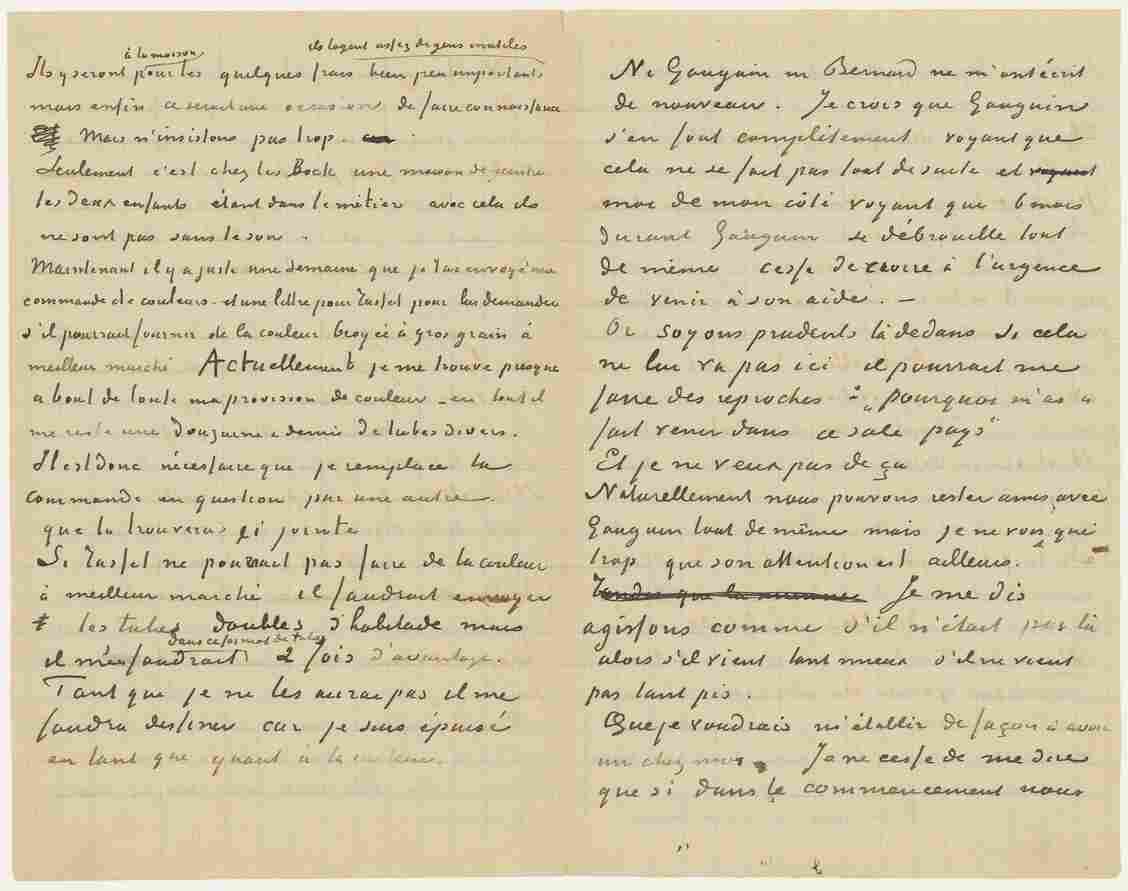 à la maison ils logent assez de gens inutiles
Ils y seront pour les quelques frais bien peu importants
mais enfin ce serait une occasion de faire connaissance
Mais n'insistons pas trop.
Seulement c'est chez les Bock une maison de peintre
les deux enfants étant dans le métier avec cela ils
ne sont pas sans le son.
Maintenant il y a juste une semaine que je t'ai envoyé une
commande de couleurs – et une lettre pour Tasset pour lui demander
s'il pourrait fournir de la couleur broyée à gros grain à
meilleur marché Actuellement je me trouve presque
a bout de toute ma provision de couleur – en tout il
me reste une douzaine e demie de tubes divers.
Il est donc nécessaire que je remplace la
commande en question par une autre
que tu trouveras çi jointe
Si Tasset ne pourrait pas faire de la couleur
à meilleur marché il faudrait envoyer
les tubes doubles d'habitude mais
dans ce format de tubes
il m'en faudrait 2 fois d'avantage.
Tant que je ne les aurai pas il me
faudra dessiner car je suis épuisé
en tant que quant à la couleur.
Ni Gauguin ni Bernard ne m'ont écrit
de nouveau. Je crois que Gauguin
s'en fout complètement voyant que
cela ne se fait pas tout de suite et voyant
moi de mon côté voyant que 6 mois
durant Gauguin se débrouille tout
de même cesse de croire à l'urgence
de venir à son aide. –
Or soyons prudents là dedans Si cela
ne lui va pas ici il pourrait me
faire des reproches : „pourquoi m'as tu
fait venir dans ce sale pays"
Et je ne veux pas de ça
Naturellement nous pouvons rester amis avec
Gauguin tout de même mais je ne vois que
trop que son attention est ailleurs.
Tandis que la Je me dis
agissons comme s'il n'était pas là
alors s'il vient tant mieux s'il ne vient
pas tant pis.
Que je voudrais m'établir de façon à avoir
un chez moi. Je ne cesse de me dire
que si dans le commencement nous